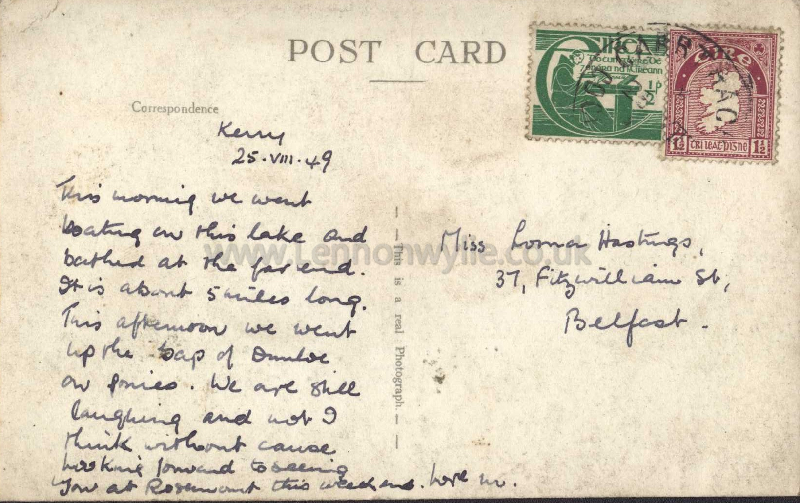 POST CARD
Correspondence
Kerry
25.VIII.49
This morning we went
boating on this lake and
bathed at the far end.
It is about 5 miles long.
This afternoon we went
up the Gap of Dunloe
on ponies. We are still
laughing and not I
think without cause
Looking forward to seeing
you at Rosemount this weekend. Love
This is a real Photograph.
Miss Lorna Hastings,
37, Fitzwilliam St,
Belfast.
½P
éire
1½ trí leat-pingne 1½
www.Lennonwylie.co.uk